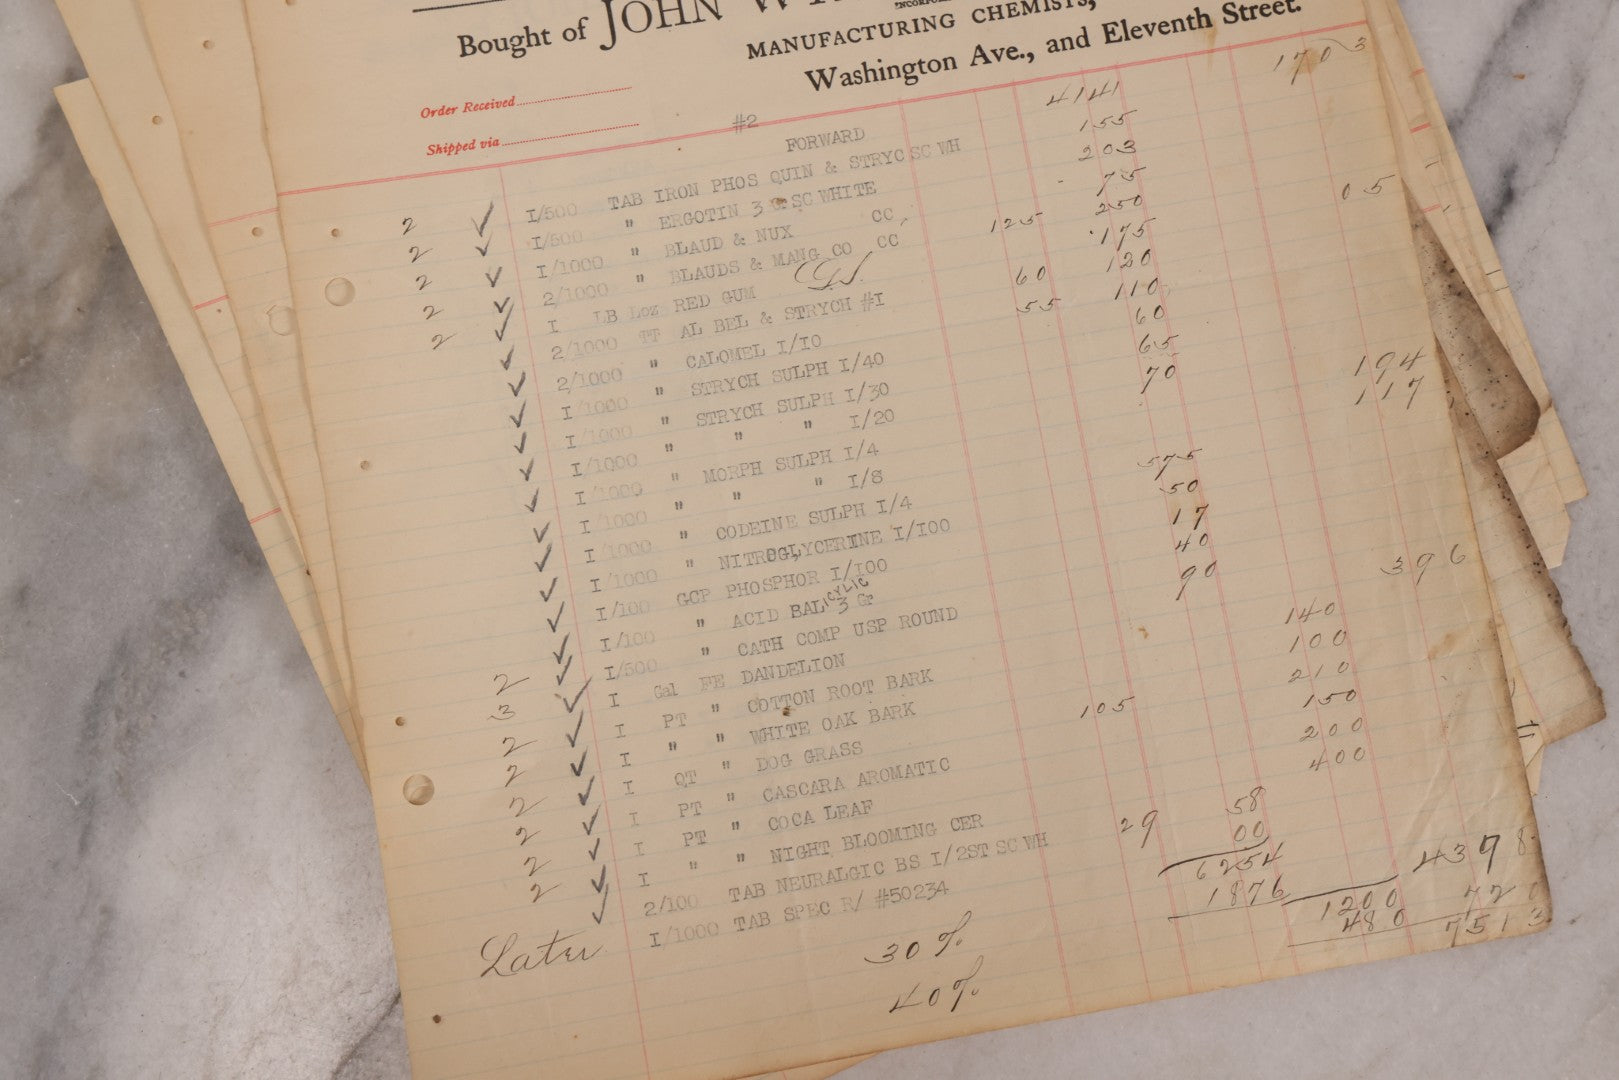 Bought of JOHN
INCORPO
MANUFACTURING CHEMISTS,
Washington Ave., and Eleventh Street.
Order Received
Shipped via
#2
FORWARD 4141 1703
2 ✓ I/500 TAB IRON PHOS QUIN & STRYC SC WH 155
2 ✓ I/500 " ERGOTIN 3 G SC WHITE 203
2 ✓ I/1000 " BLAUD & NUX CC 75
2 ✓ 2/1000 " BLAUDS & MANG CO CC 125 250
2 ✓ I LB Loz RED GUM 175 05
✓ 2/1000 TT AL BEL & STRYCH #I 60 120
✓ 2/1000 " CALOMEL I/IO 55 110
✓ I/1000 " STRYCH SULPH I/40 60
✓ I/1000 " STRYCH SULPH I/30 65
✓ I/1000 " " " I/20 70
✓ I/1000 " MORPH SULPH I/4 194
✓ I/1000 " " " I/8 117
✓ I/1000 " CODEINE SULPH I/4 575
✓ I/1000 " NITROGLYCERINE I/IOO 50
✓ I/100 GCP PHOSPHOR I/IOO 17
✓ I/100 " ACID SALICYLIC 3 Gr 40
✓ I/500 " CATH COMP USP ROUND 90
2 ✓ I Gal FE DANDELION 396
3 ✓ I PT " COTTON ROOT BARK 140
2 ✓ I " " WHITE OAK BARK 100
2 ✓ I QT " DOG GRASS 210
2 ✓ I PT " CASCARA AROMATIC 105 150
2 ✓ I PT " COCA LEAF 200
2 ✓ I " " NIGHT BLOOMING CER 400
2 ✓ 2/100 TAB NEURALGIC BS I/2ST SC WH 29 58
Later ✓ I/1000 TAB SPEC R/ #50234 00
30% 6254 4398
40% 1876 1200 720
480 7513